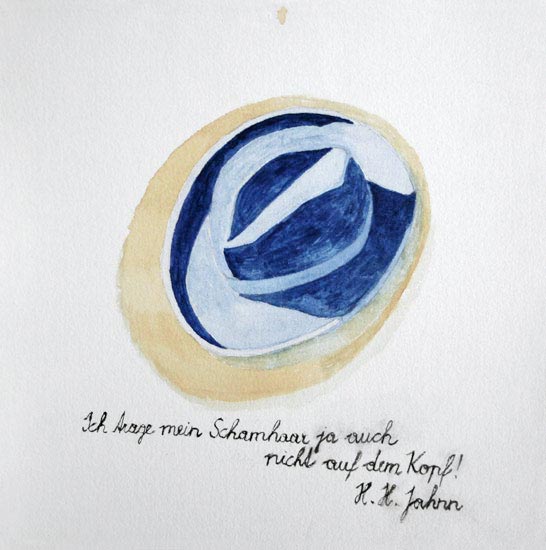 Ich trage mein Schamhaar ja auch
nicht auf dem Kopf!
H. H. Jahnn